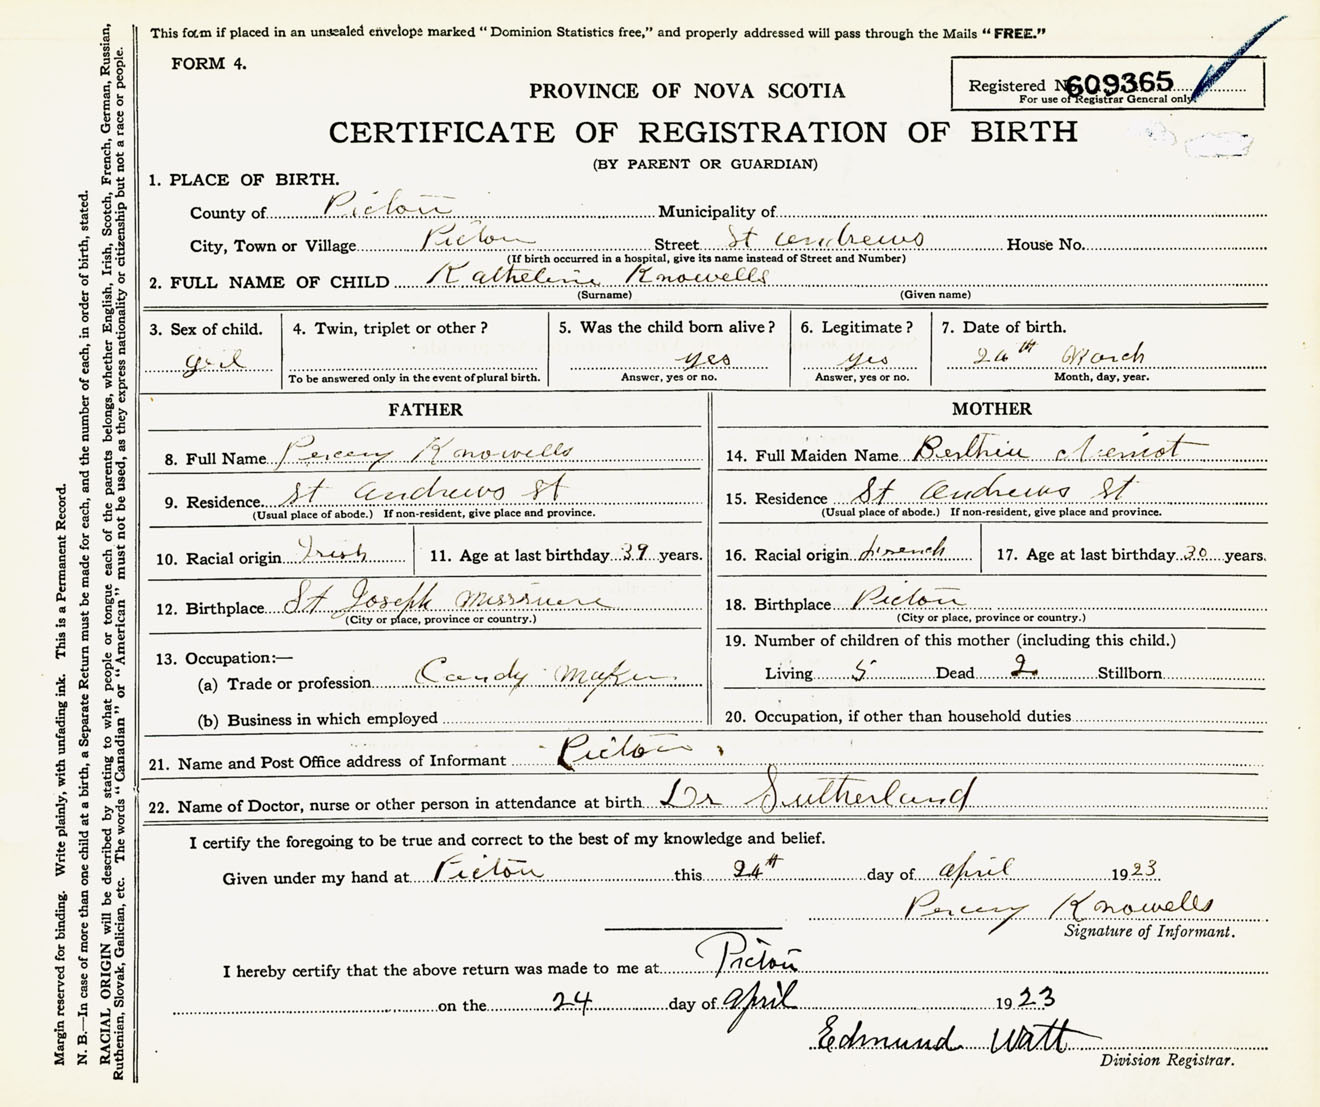 This form if placed in an unsealed envelope marked “Dominion Statistics free,” and properly addressed will pass through the Mails “FREE.”
FORM 4.
Registered No. 609365
For use of Registrar General only
PROVINCE OF NOVA SCOTIA
CERTIFICATE OF REGISTRATION OF BIRTH
(BY PARENT OR GUARDIAN)
1. PLACE OF BIRTH.
County of Pictou Municipality of
City, Town or Village Pictou Street St Andrews House No.
(If birth occurred in a hospital, give its name instead of Street and Number)
2. FULL NAME OF CHILD Katheline Knowells
(Surname) (Given name)
3. Sex of child. 4. Twin, triplet or other? 5. Was the child born alive? 6. Legitimate? 7. Date of birth.
girl yes yes 24th March
To be answered only in the event of plural birth. Answer, yes or no. Answer, yes or no. Month, day, year.
FATHER
8. Full Name Percey Knowells
9. Residence. St Andrews St
(Usual place of abode.) If non-resident, give place and province.
10. Racial origin Irish 11. Age at last birthday 39 years.
12. Birthplace St Joseph
(City or place, province or country.)
13. Occupation:—
(a) Trade or profession Candy Maker
(b) Business in which employed
MOTHER
14. Full Maiden Name
15. Residence St Andrews St
(Usual place of abode.) If non-resident, give place and province.
16. Racial origin French 17. Age at last birthday 30 years.
18. Birthplace Pictou
(City or place, province or country.)
19. Number of children of this mother (including this child.)
Living 5 Dead 2 Stillborn
20. Occupation, if other than household duties
21. Name and Post Office address of Informant Pictou
22. Name of Doctor, nurse or other person in attendance at birth Dr Sutherland
I certify the foregoing to be true and correct to the best of my knowledge and belief.
Given under my hand at Pictou this 24th day of April 1923
Percey Knowells
Signature of Informant.
I hereby certify that the above return was made to me at Pictou
on the 24 day of April 1923
Edmund Watt
Division Registrar.
Margin reserved for binding. Write plainly, with unfading ink. This is a Permanent Record.
N. B.—In case of more than one child at a birth, a Separate Return must be made for each, and the number of each, in order of birth, stated.
RACIAL ORIGIN will be described by stating to what people or tongue each of the parents belongs, whether English, Irish, Scotch, French, German, Russian,
Ruthenian, Slovak, Galician, etc. The words “Canadian” or “American” must not be used, as they express nationality or citizenship but not a race or people.